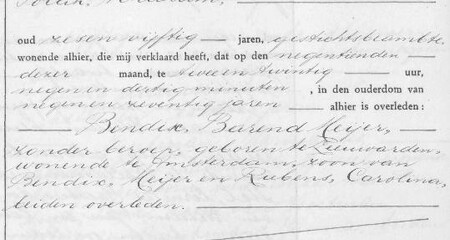 oud zes en vijftig jaren, gestichtsbeambte
wonende alhier, die mij verklaard heeft, dat op den negentienden
dezer maand, te twee en twintig uur,
negen en dertig minuten, in den ouderdom van
negen en zeventig jaren alhier is overleden:
Bendix, Barend Meijer,
zonder beroep, geboren te Leeuwarden,
wonende te Amsterdam, zoon van
Bendix, Meijer en Rubens, Carolina,
beiden overleden.